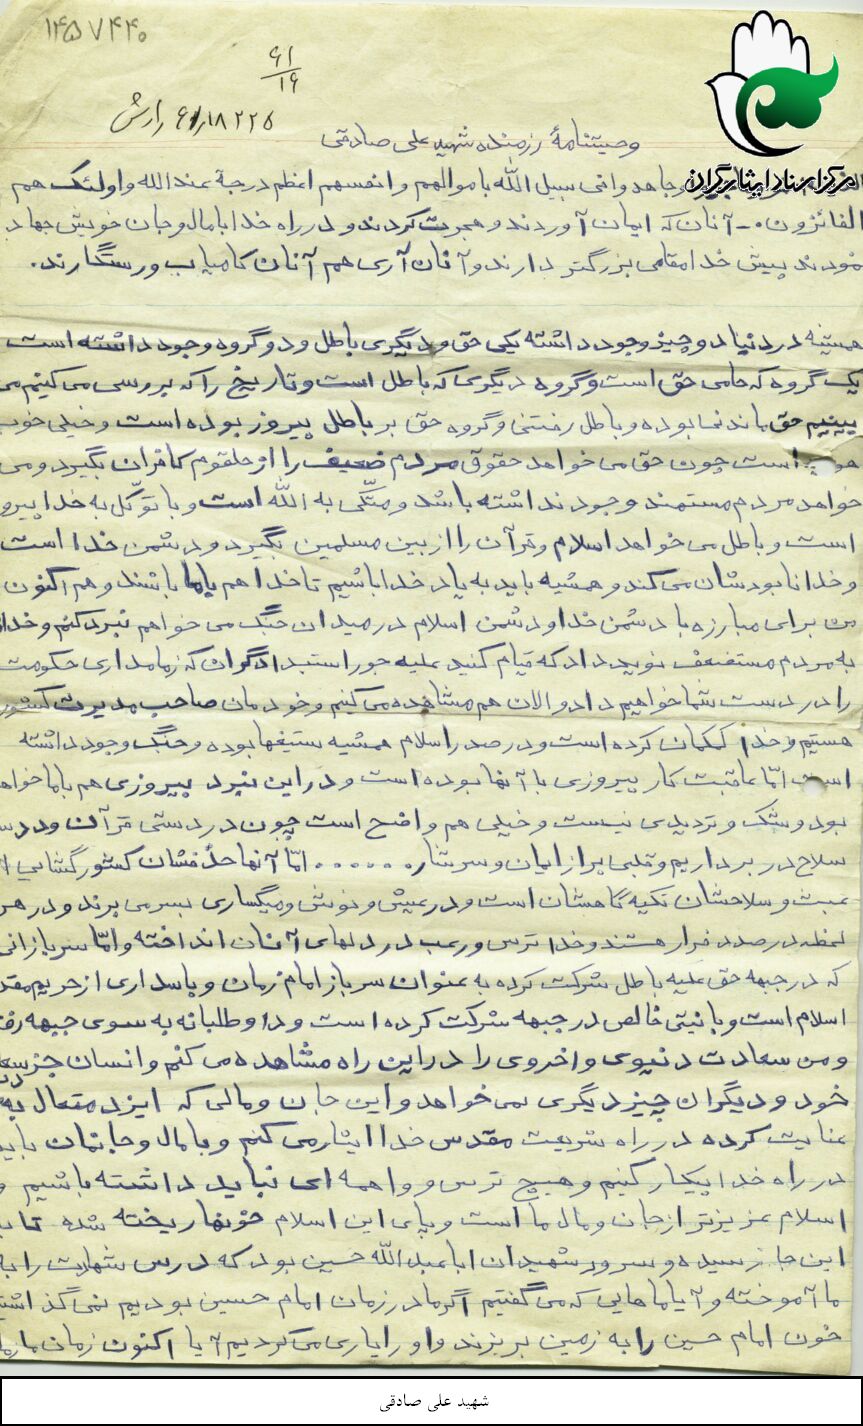 ۱۴۵۷۴۴۰
۶۱
۱۶
۶۱/۱۸۲۲۵
مرکز اسناد ایثارگران
وصیتنامهٔ رزمنده شهید علی صادقی
وجاهدوا فی سبیل الله باموالهم و انفسهم اعظم درجة عندالله و اولئک هم
الفائزون. - آنان که ایمان آوردند و هجرت کردند و در راه خدا با مال و جان خویش جهاد
نمودند پیش خدا مقامی بزرگتر دارند و آنان آری هم آنان کامیاب و رستگارند.
همیشه در دنیا دو چیز وجود داشته یکی حق و دیگری باطل و دو گروه وجود داشته است
یک گروه که حامی حق است و گروه دیگری که باطل است و تاریخ را که بررسی می کنیم می
بینیم حق ماندنی بوده و باطل رفتنی و گروه حق بر باطل پیروز بوده است و خیلی خوب
است چون حق می خواهد حقوق مردم ضعیف را از حلقوم کافران بگیرد و می
خواهد مردم مستمند وجود نداشته باشد و متّکی به الله است و با توکّل به خدا پیرو
است و باطل می خواهد اسلام و قرآن را از بین مسلمین بگیرد و دشمن خدا است
و خدا نابودشان می کند و همیشه باید به یاد خدا باشیم تا خدا هم با ما باشند و هم اکنون
من برای مبارزه با دشمن خدا و دشمن اسلام در میدان جنگ می خواهم نبرد کنم و خدا
به مردم مستضعف نوید داد که قیام کنید علیه جور استبدادگران که زمامداری حکومت
را در دست شما خواهیم داد و الان هم مشاهده می کنیم و خودمان صاحب مدیریت کشور
هستیم و خدا کمکمان کرده است و در صدر اسلام همیشه ستیغها بوده و جنگ وجود داشته
است امّا عاقبت کار پیروزی با آنها بوده است و در این نبرد پیروزی هم با ما خواهد
بود و شک و تردیدی نیست و خیلی هم واضح است چون در دستی قرآن و در
سلاح در بر داریم و قلبی پر از ایمان و سرشار....... امّا آنها حدفشان کشور گشائی
عبث و سلاحشان تکیه گاهشان است و در عیش و نوش و میگساری بسر می برند و در هر
لحظه در صدد فرار هستند و خدا ترس و رعب در دلهای آنان انداخته و امّا سربازانی
که در جبهه حق علیه باطل شرکت کرده به عنوان سرباز امام زمان و پاسداری از حریم مقد
اسلام است و با نیتی خالص در جبهه شرکت کرده است و داوطلبانه به سوی جبهه رفت
و من سعادت دنیوی و اخروی را در این راه مشاهده می کنم و انسان جز سعادت
خود و دیگران چیز دیگری نمی خواهد و این جان و مالی که ایزد متعال به
عنایت کرده در راه شریعت مقدس خدا ایثار می کنم و با مال و جانمان باید
در راه خدا پیکار کنیم و هیچ ترس و واهمه ای نباید داشته باشیم و
اسلام عزیزتر از جان و مال ما است و پای این اسلام خونها ریخته شده تا به
این جا رسیده و سرور شهیدان اباعبدالله حسین بود که درس شهادت را به
ما آموخته و آیا ماهایی که می گفتیم اگر ما در زمان امام حسین بودیم نمی گذاشتیم
خون امام حسین را به زمین بریزند و او را یاری می کردیم آیا اکنون زمان ما
شهید علی صادقی